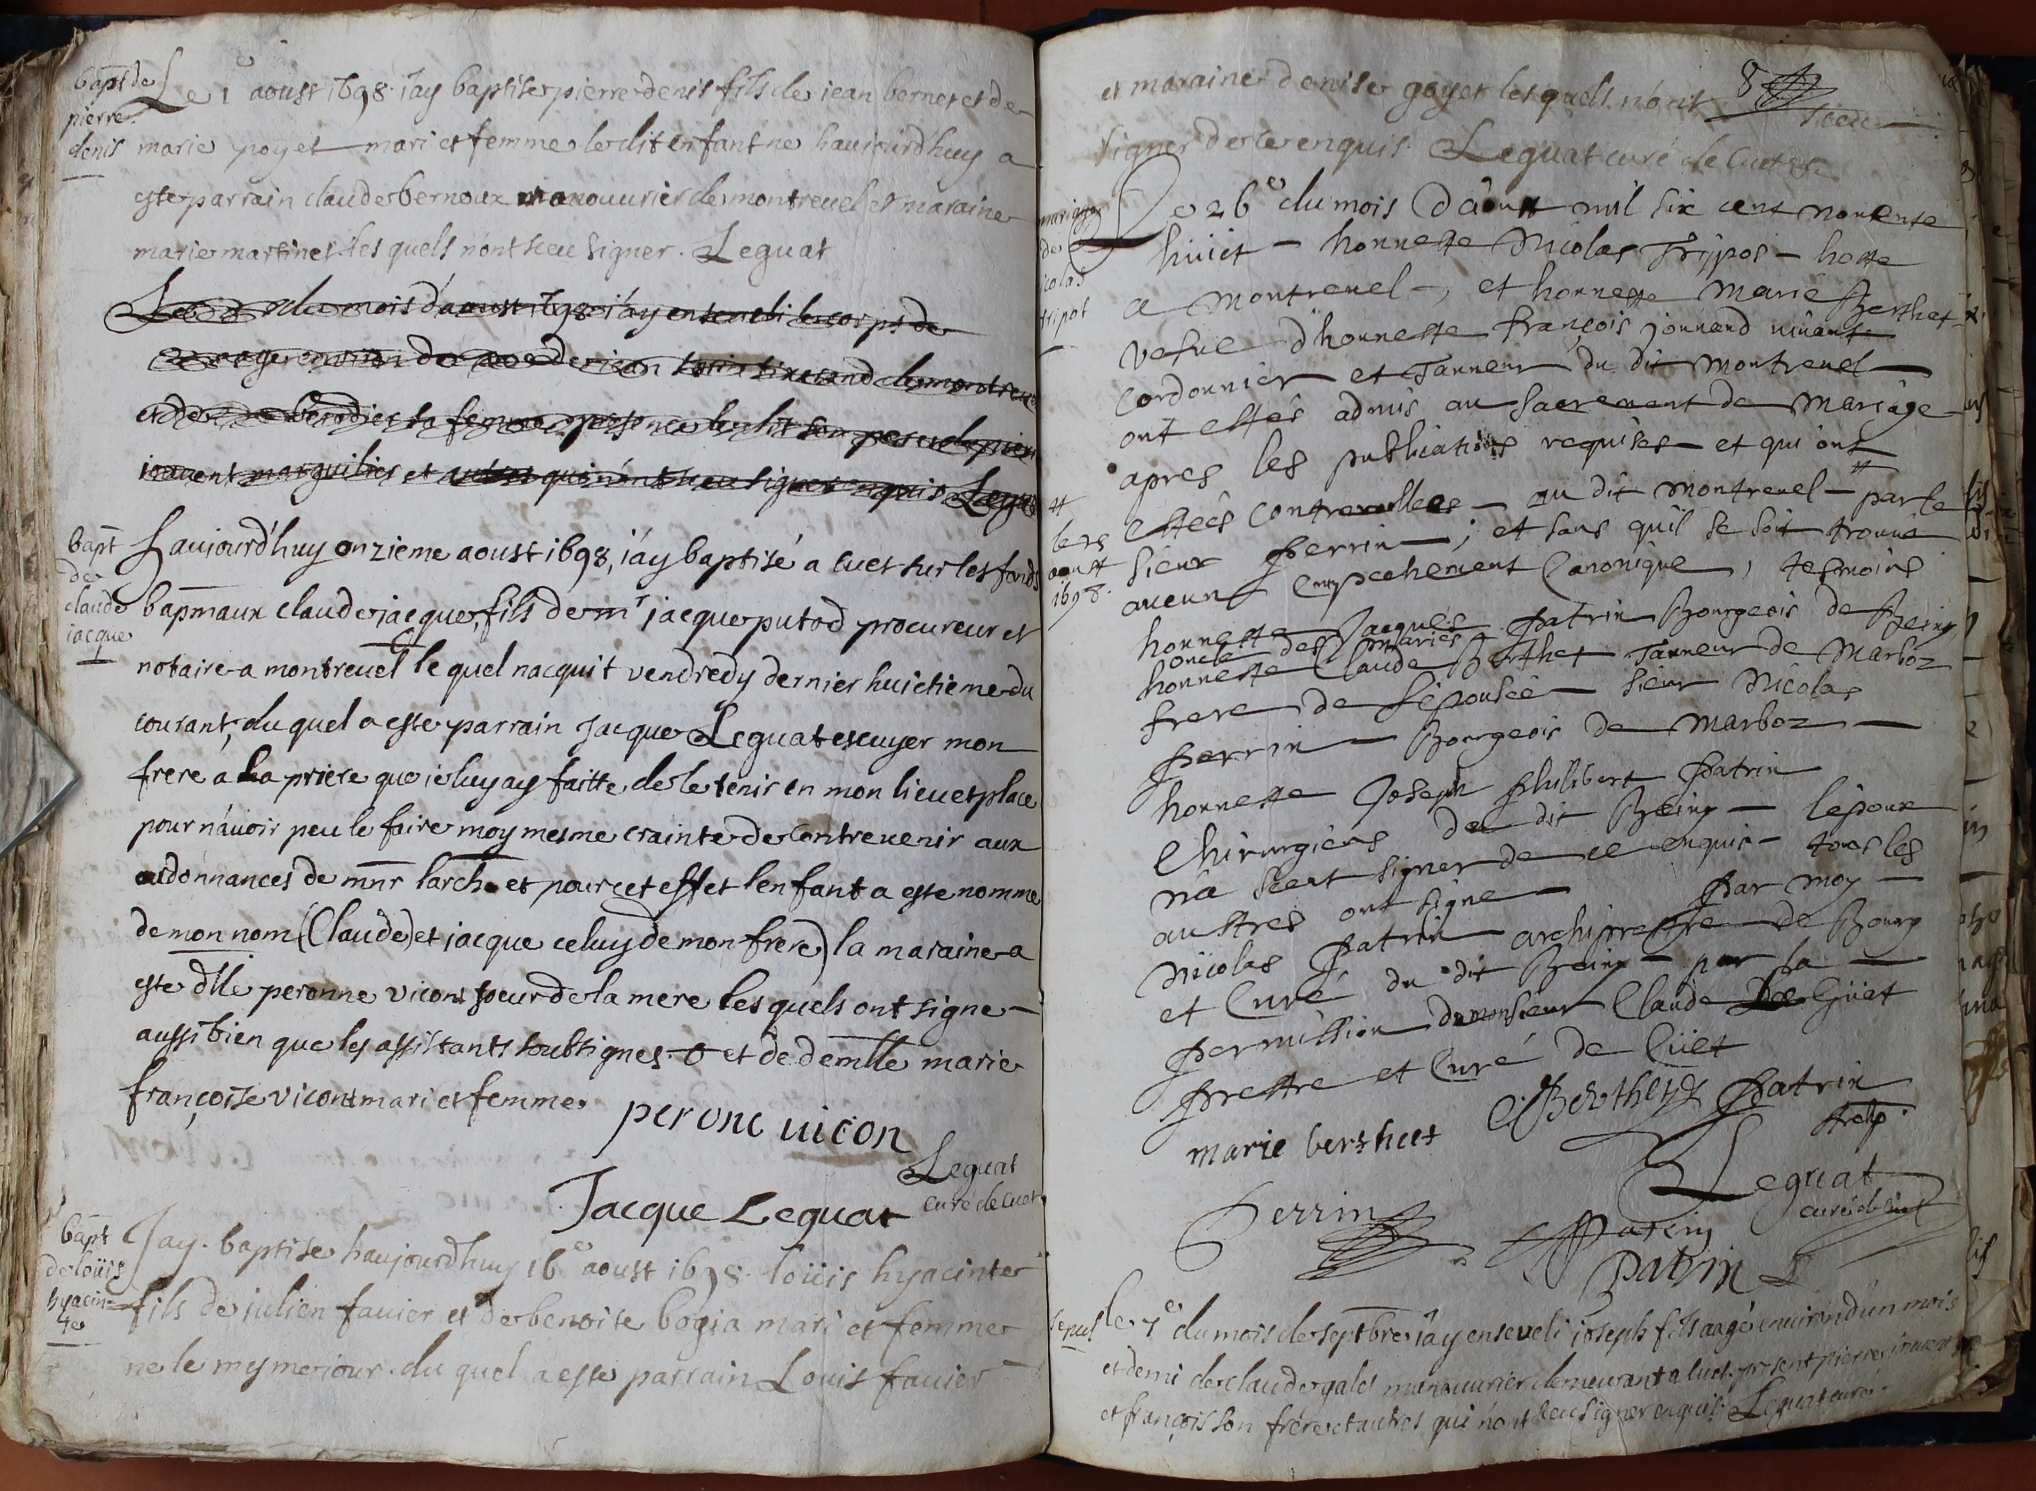 bapt de
pierre
denis
Le 1er aoust 1698 iay baptise pierre denis fils de iean bernet et de
marie poyet mari et femme le dit enfant ne haujourd'huy a
este parrain claude bernoux manouurier de montreuel et maraine
marie martinet les quels n'ont sceu signer. Leguat
Le du mois d'aoust 1698 i'ay enseueli le corps de
aage enuiron de de iean de montreuel
et de sa femme presence le dit son pere et pierre
iouuent marguilier et autres qui n'ont sceu signer enquis Leguat
bapt
de
claude
iacque
haujourd'huy onzieme aoust 1698, i'ay baptisé a cuet sur les fonds
bapmaux claude iacque, fils de mr jacque putod procureur et
notaire a montreuel le quel nacquit vendredy dernier huictieme du
courant, du quel a este parrain Jacque Leguat escuyer mon
frere a la priere que ie luy ay faitte de le tenir en mon lieu et place
pour n'auoir peu le faire moy mesme crainte de contreuenir aux
ordonnances de mnr larch. et pour cet effet l'enfant a este nomme
de mon nom (Claude) et jacque celuy de mon frere) la maraine a
este dlle peronne vicon soeur de la mere les quels ont signe
aussi bien que les assistants soubsignes. et de demlle marie
françoise vicon mari et femme
perone uicon
Leguat
curé de cuet
Jacque Leguat
bapt
de loüis
hyacin=
te
Jay baptise haujourd'huy 16e aoust 1698 loüis hyacinte
fils de julien fauier et de benoite bogia mari et femme
ne le mesme jour. du quel a este parrain Louis fauier
et maraine denise goyet les quels n'ont sceu
8
signer de ce enquis. Leguat curé de cuet
mariage
de
nicolas
tripot
Le 26e du mois D'aoust mil six cent nonente
huict – honneste Nicolas Trippos – hoste
a Montreuel –, et honneste Marie Berthet
vefue d'honneste françois jouuend viuant
Cordonnier et Tanneur du dit Montreuel
ont estés admis au sacrement de Mariage
apres les publications requises – et qui ont
estés Controullees – au dit Montreuel – par le
le 25
aoust
1698.
sieur Perrin; et sans quil se soit trouué
aucun empechement Canonique, tesmoins
honneste Jacques Patrin Bourgeois de Beiny
oncle des mariés
honneste Claude Berthet Tanneur de Marboz
frere de l'épousée – sieur Nicolas
Perrin – Bourgeois de Marboz –
honneste Joseph Philibert Patrin
Chirurgiens du dit Beiny – l'époux
n'a sceut signer de ce enquis – tous les
austres ont signe – Par moy –
Nicolas Patrin archiprestre de Bourg
et Curé du dit Beiny – par la –
permission de monsieur Claude Le Güat
Prestre et Curé de Cüet
C. Berthet Patrin
marie berthet
Leguat
curé de cuet
Perrin Patrin
Patrin
sepul
le 7e du mois de septbre i'ay enseueli ioseph fils aagé enuiron d'un mois
et demi de claude gales manouurier demeurant a cuet present pierre iouuent
et françois son frere et autres qui n'ont sceu signer enquis. Leguat curé.